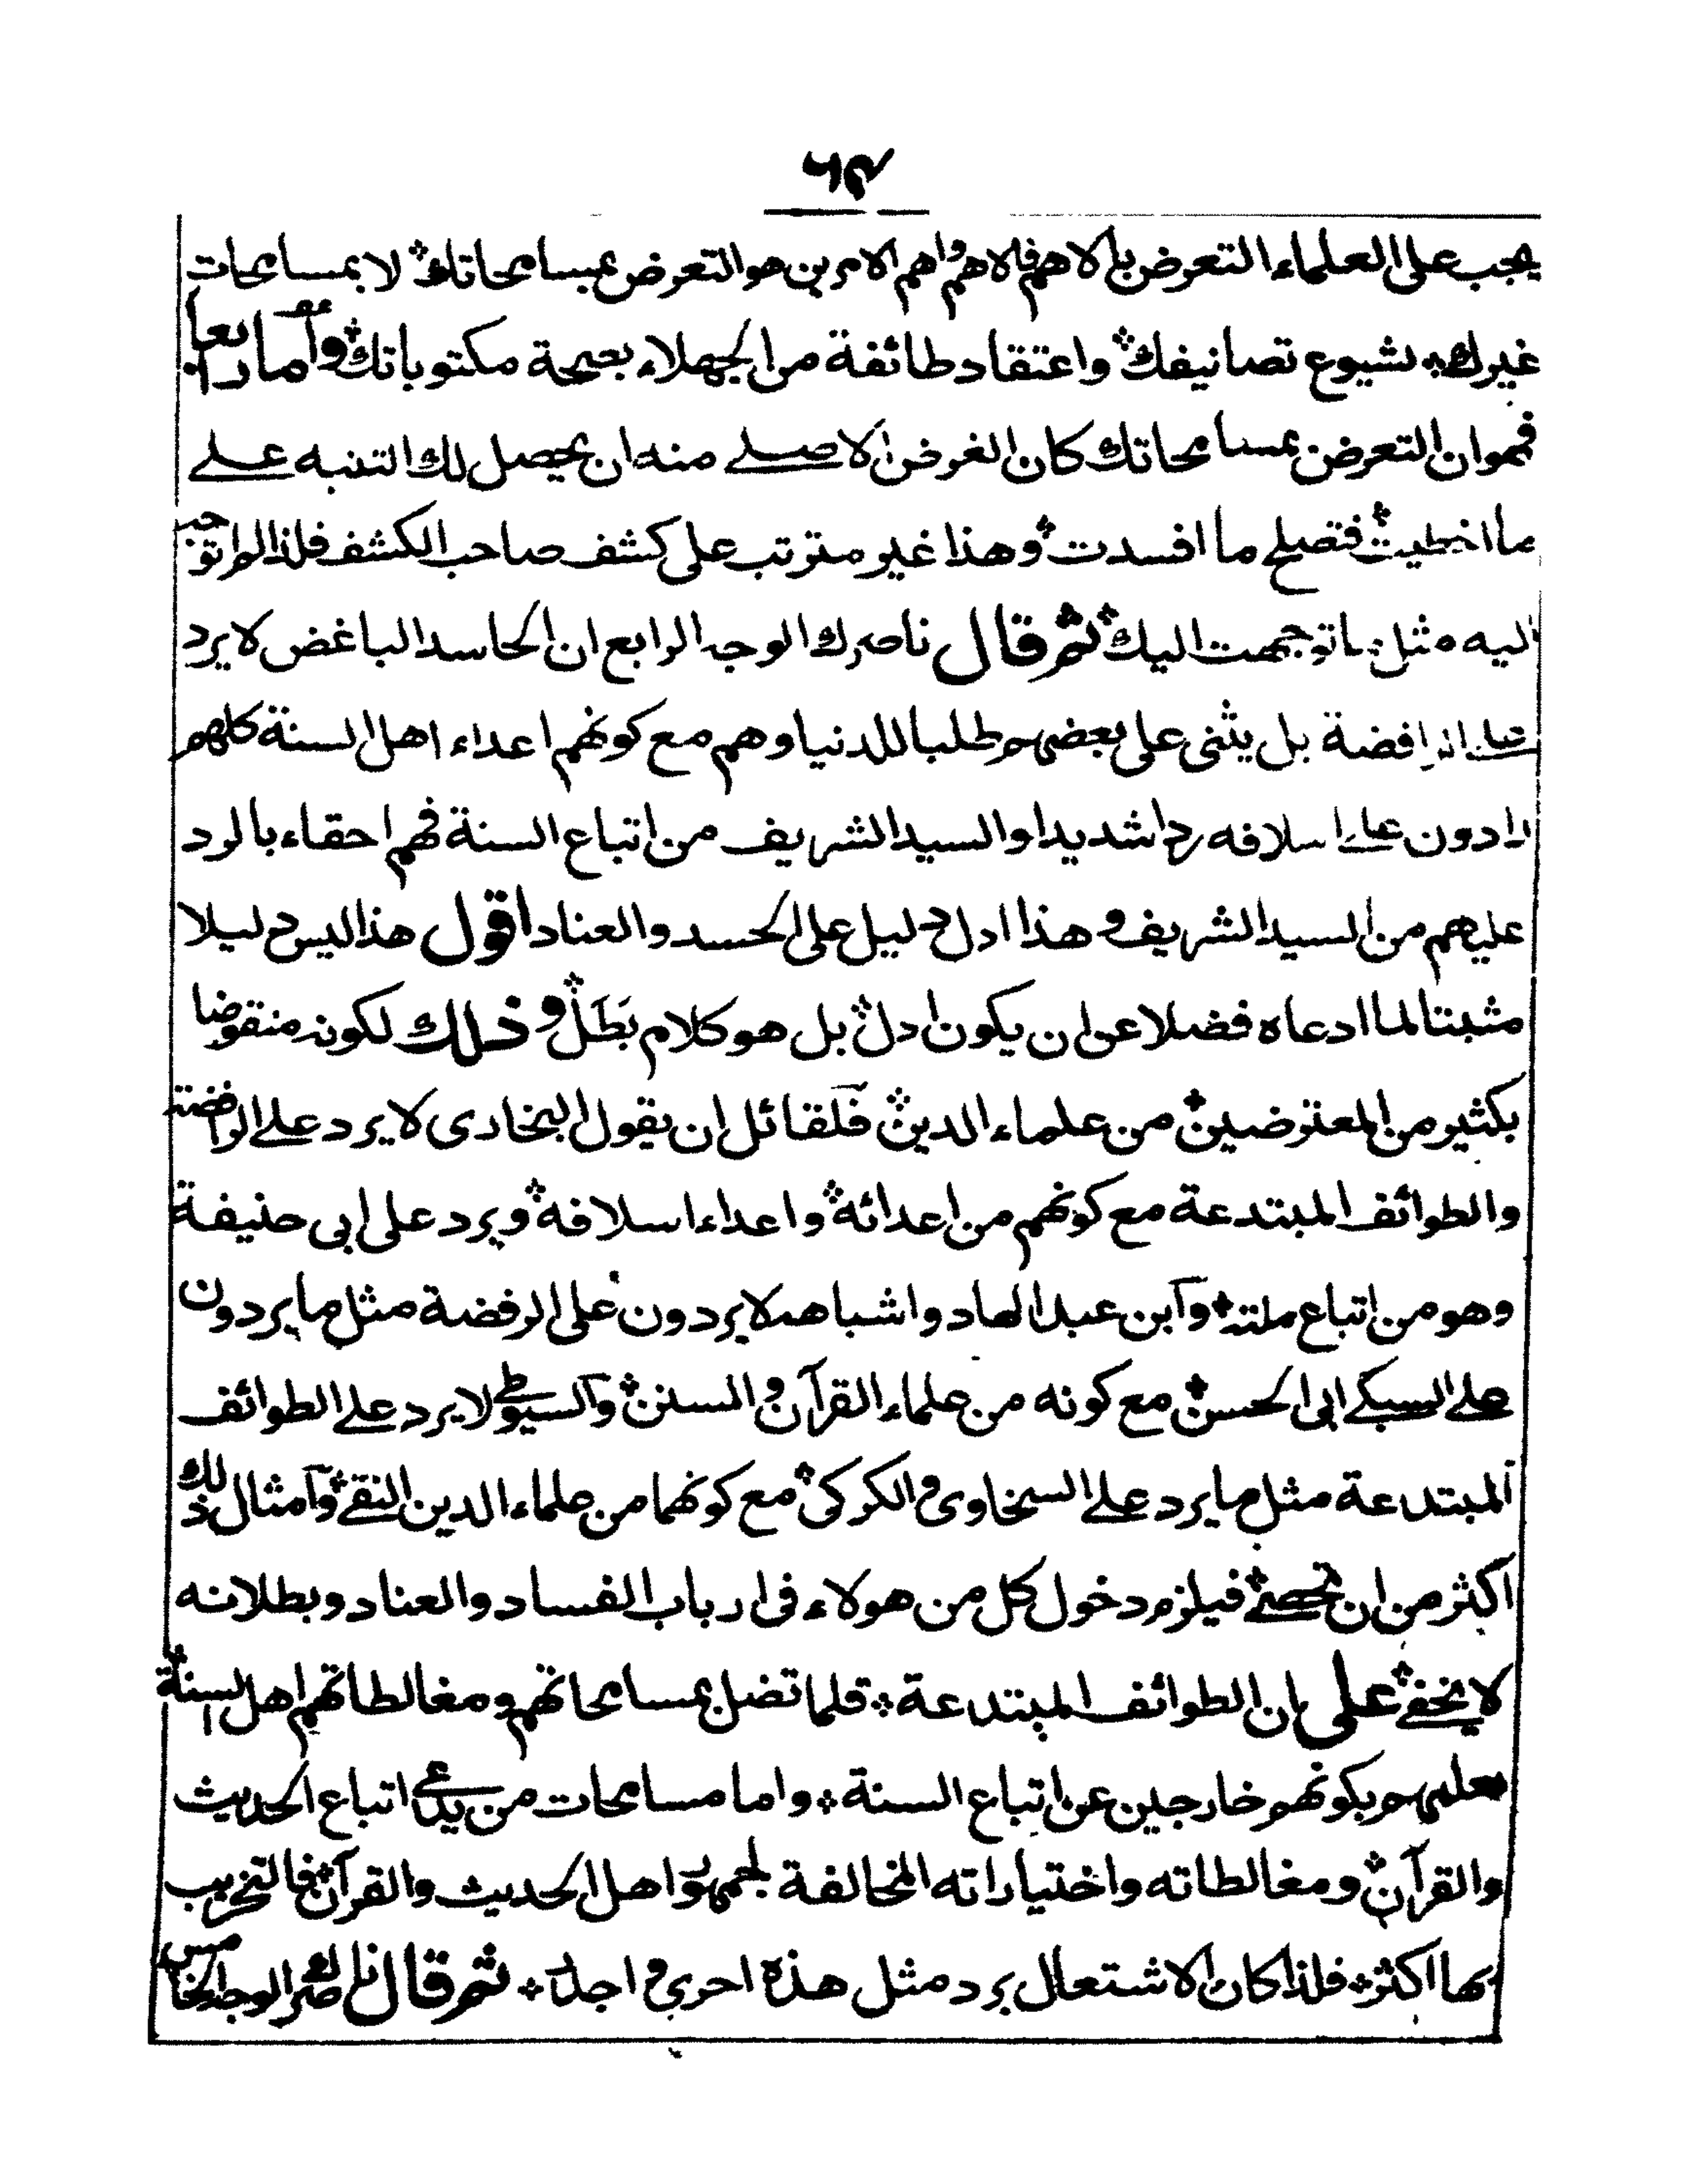 يجب على العلماء التعرض بالاهم فالاهم واهم الامرين هو التعرض بمسامحاتك لا بمسامحات
غيرك لشيوع تصانيفك واعتقاد طائفة من الجهلاء بصحة مكتوباتك وأما رابعا
فهو ان التعرض بمسامحاتك كان الغرض الاصلے منه ان يحصل لك التنبه علے
ما اخطيت فتصلح ما افسدت وهذا غير مترتب على كشف صاحب الكشف فلذا لم اتوجه
اليه مثل ما توجهت اليك ثم قال ناصرك الوجه الرابع ان الحاسد الباغض لا يرد
علے الرافضة بل يثنى على بعضهم طلبا للدنيا وهم مع كونهم اعداء اهل السنة كلهم
رادون علے اسلافه ردا شديدا والسيد الشريف من اتباع السنة فهم احقاء بالرد
عليهم من السيد الشريف وهذا ادل دليل على الحسد والعناد اقول هذا ليس دليلا
مثبتا لما ادعاه فضلا عن ان يكون ادل بل هو كلام بَطَلَ وذلك لكونه منقوضا
بكثير من المعترضين من علماء الدين فلقائل ان يقول البخارى لا يرد علے الرافضة
والطوائف المبتدعة مع كونهم من اعدائه واعداء اسلافه ويرد على ابى حنيفة
وهو من اتباع ملته وآبن عبد الهاد واشباهه لا يردون على الرفضة مثل ما يردون
علے السبكے ابى الحسن مع كونه من علماء القرآن والسنن وآلسيوطے لا يرد علے الطوائف
المبتدعة مثل ما يرد علے السخاوى والكركى مع كونهما من علماء الدين النقے وآمثال ذلك
اكثر من ان تحصے فيلزم دخول كل من هولاء فى ارباب الفساد والعناد وبطلانه
لا يخفے على ان الطوائف المبتدعة قلما تضل بمسامحاتهم ومغالطاتهم اهل السنة
لعلمهم بكونهم خارجين عن اتباع السنة واما مسامحات من يدعے اتباع الحديث
والقرآن ومغالطاته واختياراته المخالفة لجمهور اهل الحديث والقرآن فالتخريب
بها اكثر فلذا كان الاشتعال برد مثل هذه احرى واجل ثم قال ناصرك الوجه الخامس